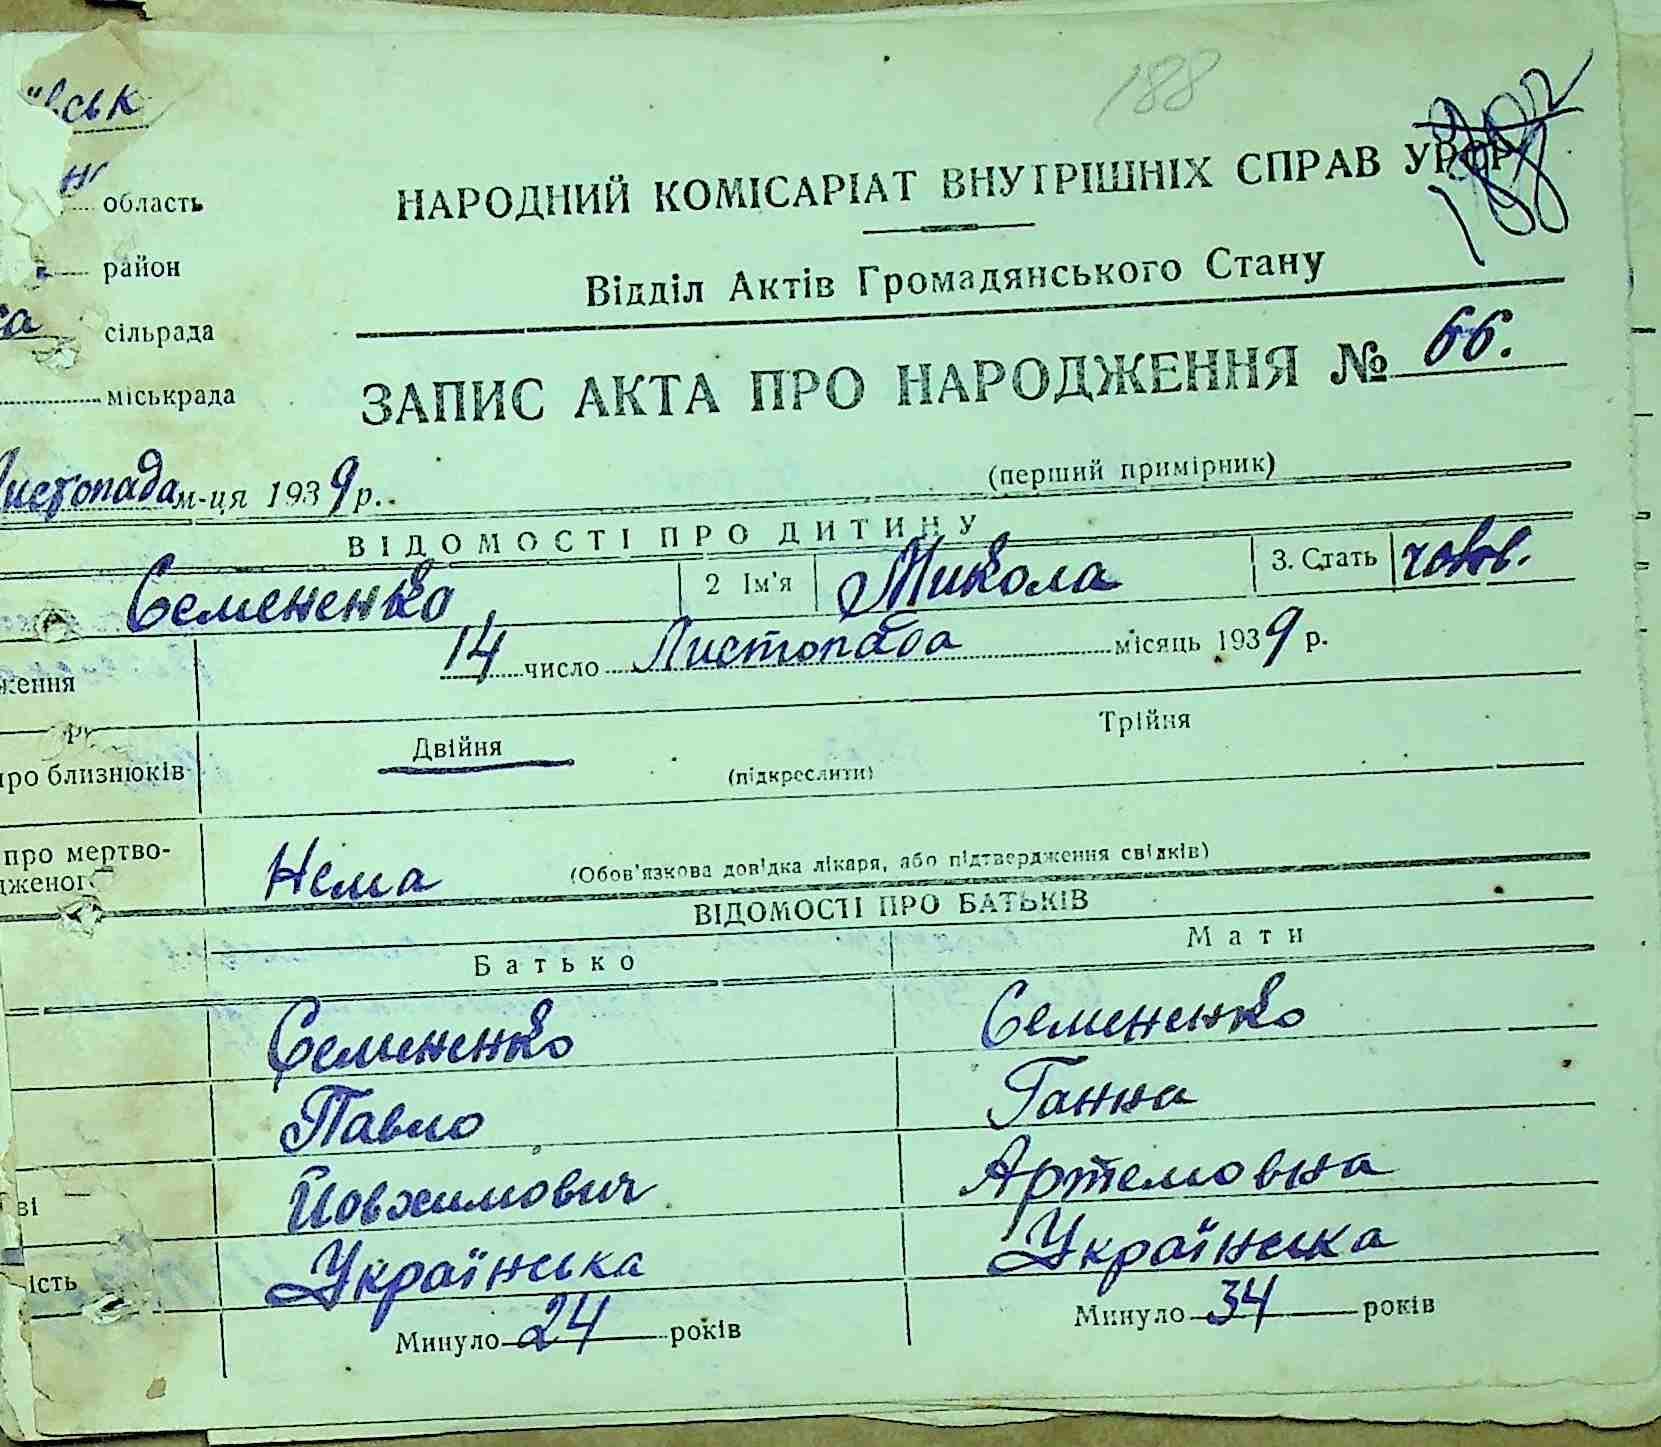 188
188
івськ
область
НАРОДНИЙ КОМІСАРІАТ ВНУТРІШНІХ СПРАВ УРСР
район
Відділ Актів Громадянського Стану
са сільрада
ЗАПИС АКТА ПРО НАРОДЖЕННЯ № 66.
міськрада
(перший примірник)
Листопада м-ця 1939 р.
ВІДОМОСТІ ПРО ДИТИНУ
Семененко 2 Ім'я Микола 3. Стать чолов.
ження 14 число Листопада місяць 1939 р.
Двійня Трійня
про близнюків (підкреслити)
про мертво-
дженог Нема (Обов'язкова довідка лікаря, або підтвердження свідків)
ВІДОМОСТІ ПРО БАТЬКІВ
Батько Мати
Семененко Семененко
Павло Ганна
ві Йовхимович Артемовна
ість Українська Українська
Минуло 24 років Минуло 34 років